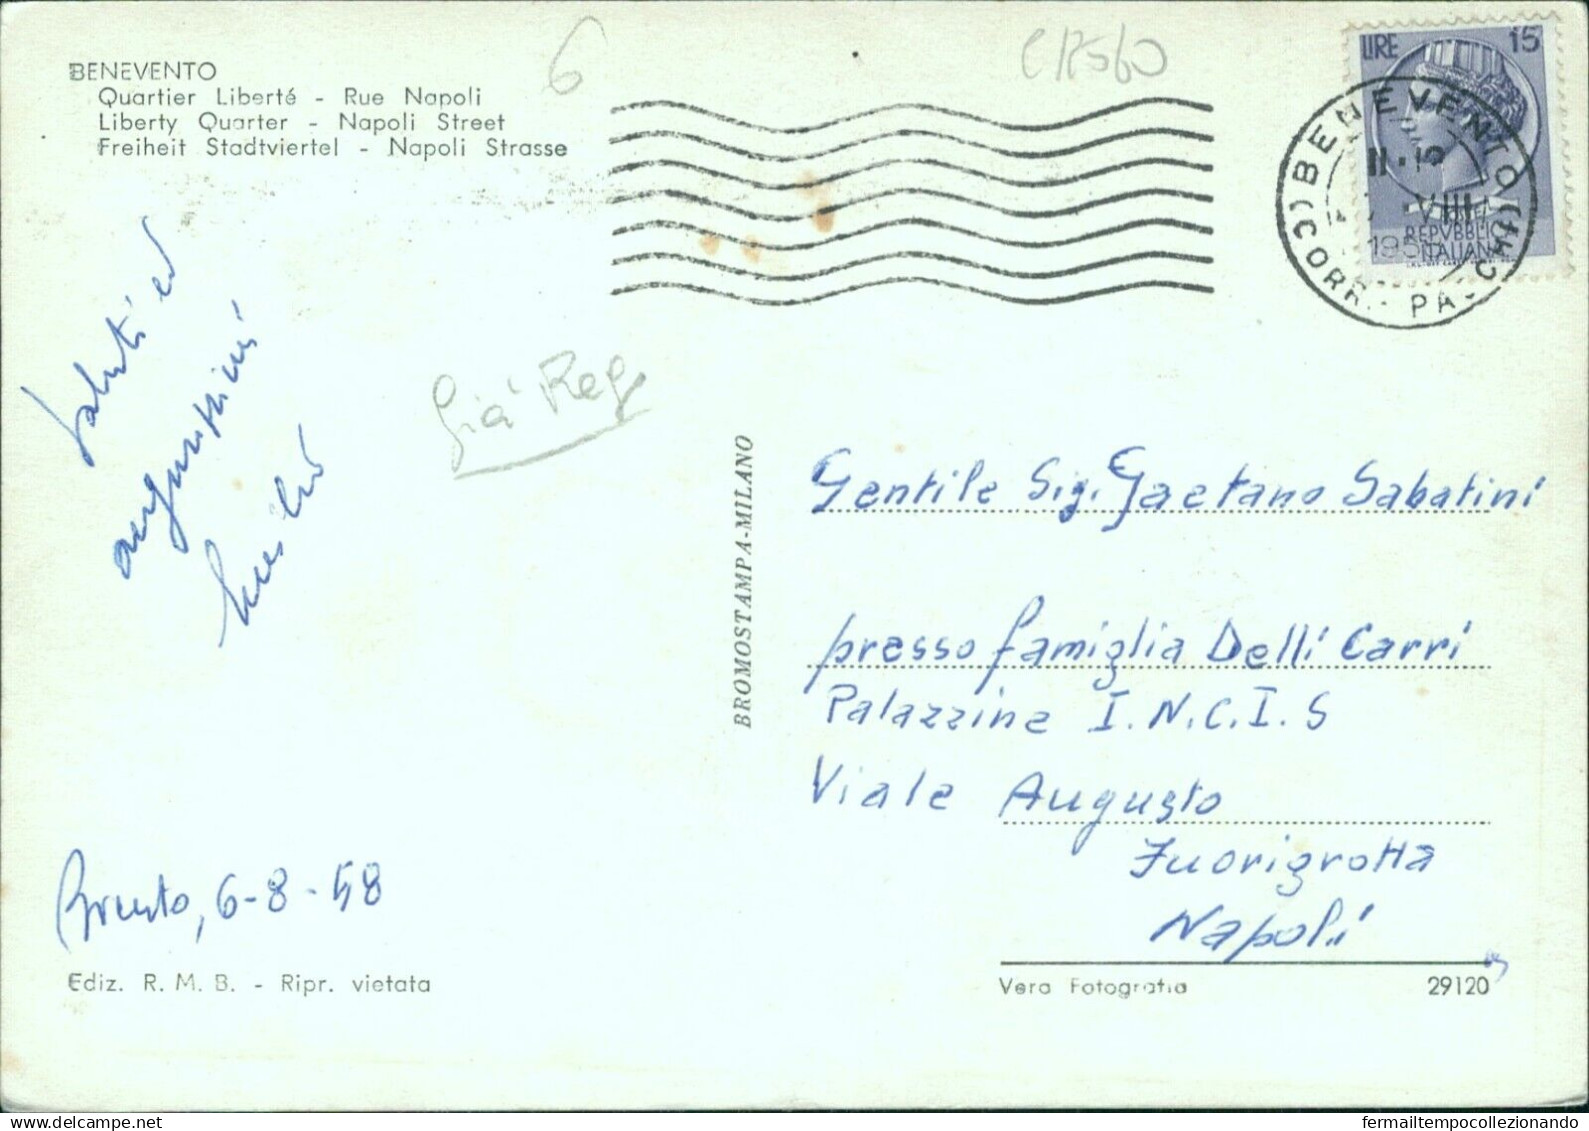 BENEVENTO
Quartier Liberté - Rue Napoli
Liberty Quarter - Napoli Street
Freiheit Stadtviertel - Napoli Strasse
6
C12560
LIRE 15
REPVBBLICA
ITALIANA
BENEVENTO
CORR. PA
VIII
Saluti ed
augurissimi
Già Reg
BROMOSTAMPA-MILANO
Gentile Sig. Gaetano Sabatini
presso famiglia Delli Carri
Palazzine I.N.C.I.S
Viale Augusto
Fuorigrotta
Napoli
6-8-58
Ediz. R. M. B. - Ripr. vietata
Vera Fotografia
29120
fermailtempocollezionando